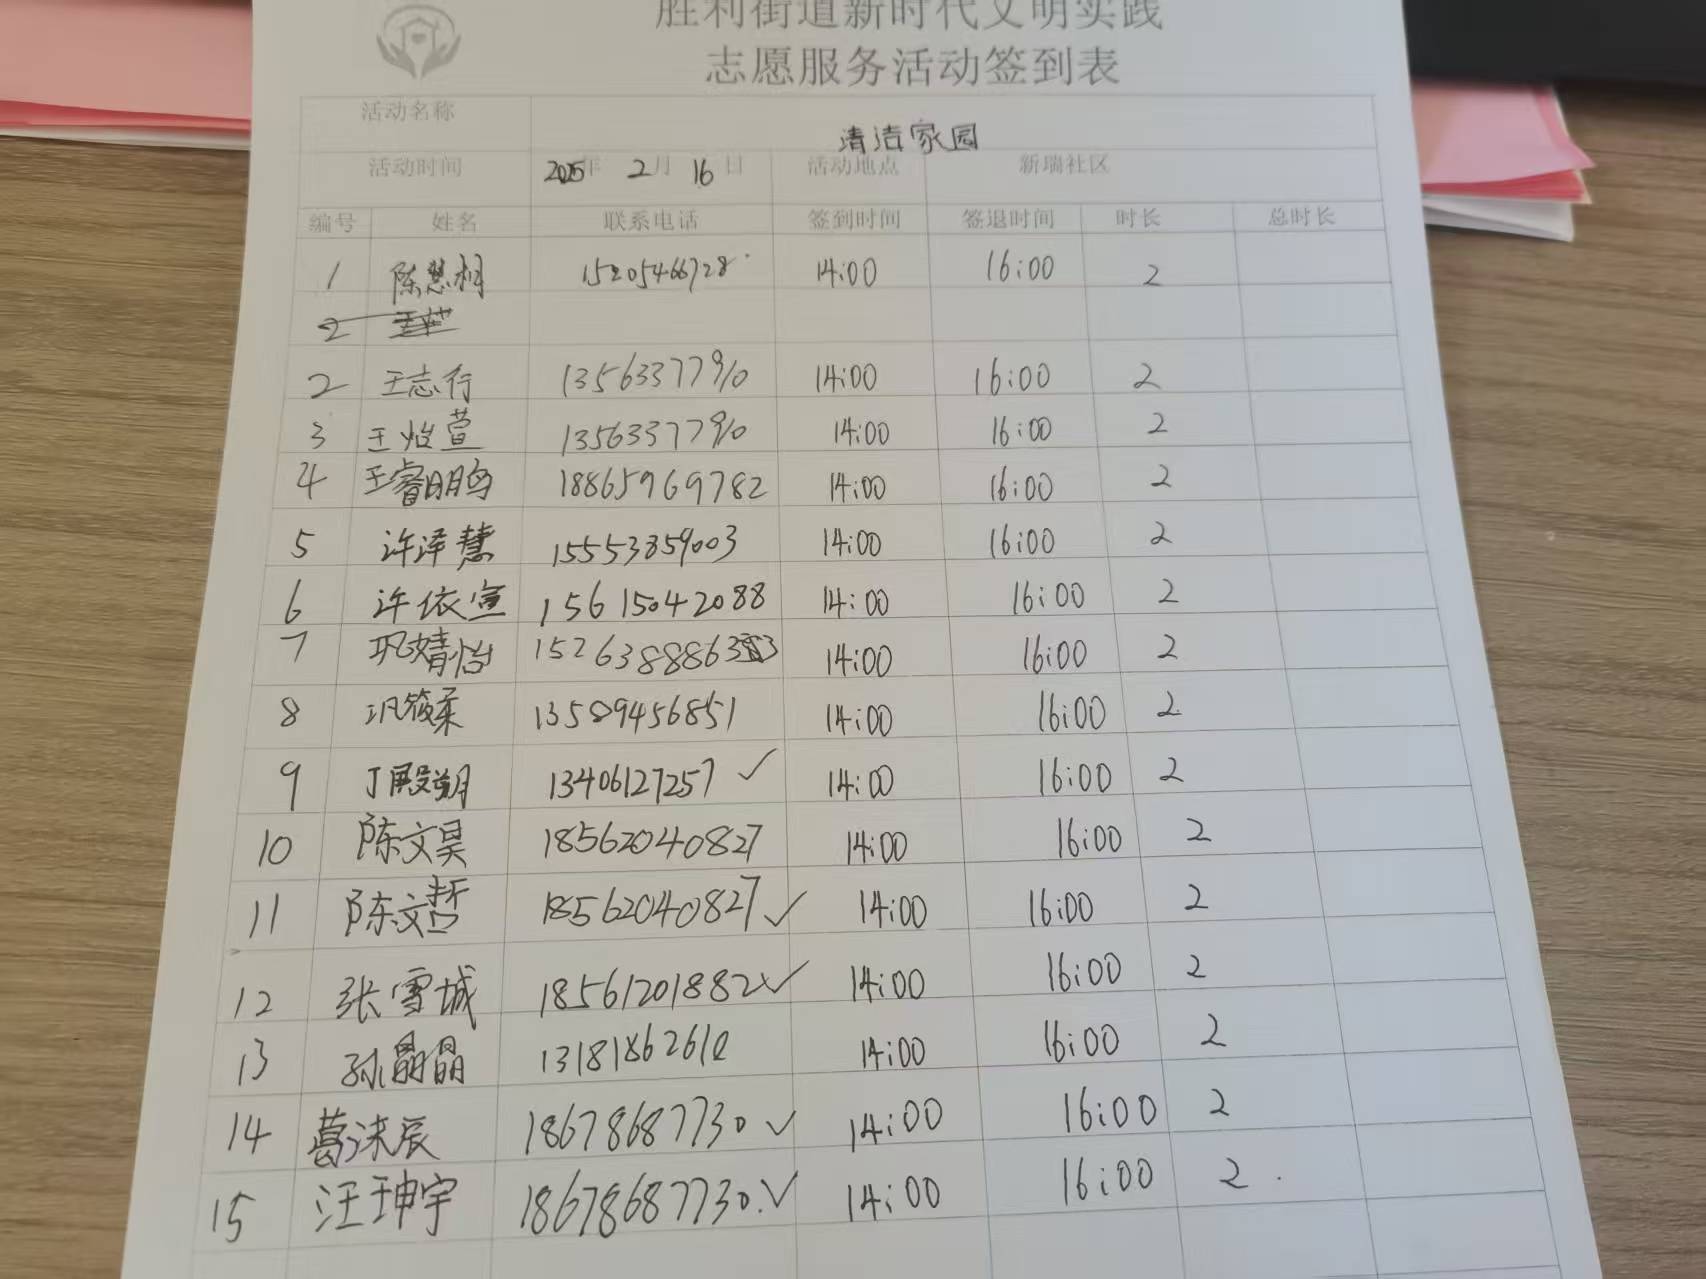 胜利街道新时代文明实践
志愿服务活动签到表
活动名称 清洁家园
活动时间 2025年 2月 16日 活动地点 新瑞社区
编号 姓名 联系电话 签到时间 签退时间 时长 总时长
1 陈慧桐 15205466728 14:00 16:00 2
2
2 王志行 13563377910 14:00 16:00 2
3 王怡萱 13563377910 14:00 16:00 2
4 王睿鹏 18865969782 14:00 16:00 2
5 许泽慧 15553859003 14:00 16:00 2
6 许依宣 15615042088 14:00 16:00 2
7 巩婧怡 14:00 16:00 2
8 巩筱柔 13589456851 14:00 16:00 2
9 丁殿朔 13406127257 ✓ 14:00 16:00 2
10 陈文昊 18562040827 14:00 16:00 2
11 陈文哲 18562040827 ✓ 14:00 16:00 2
12 张雪城 18561201882 ✓ 14:00 16:00 2
13 孙晶晶 13181862610 14:00 16:00 2
14 葛沫辰 18678687730 ✓ 14:00 16:00 2
15 汪珅宇 18678687730. ✓ 14:00 16:00 2